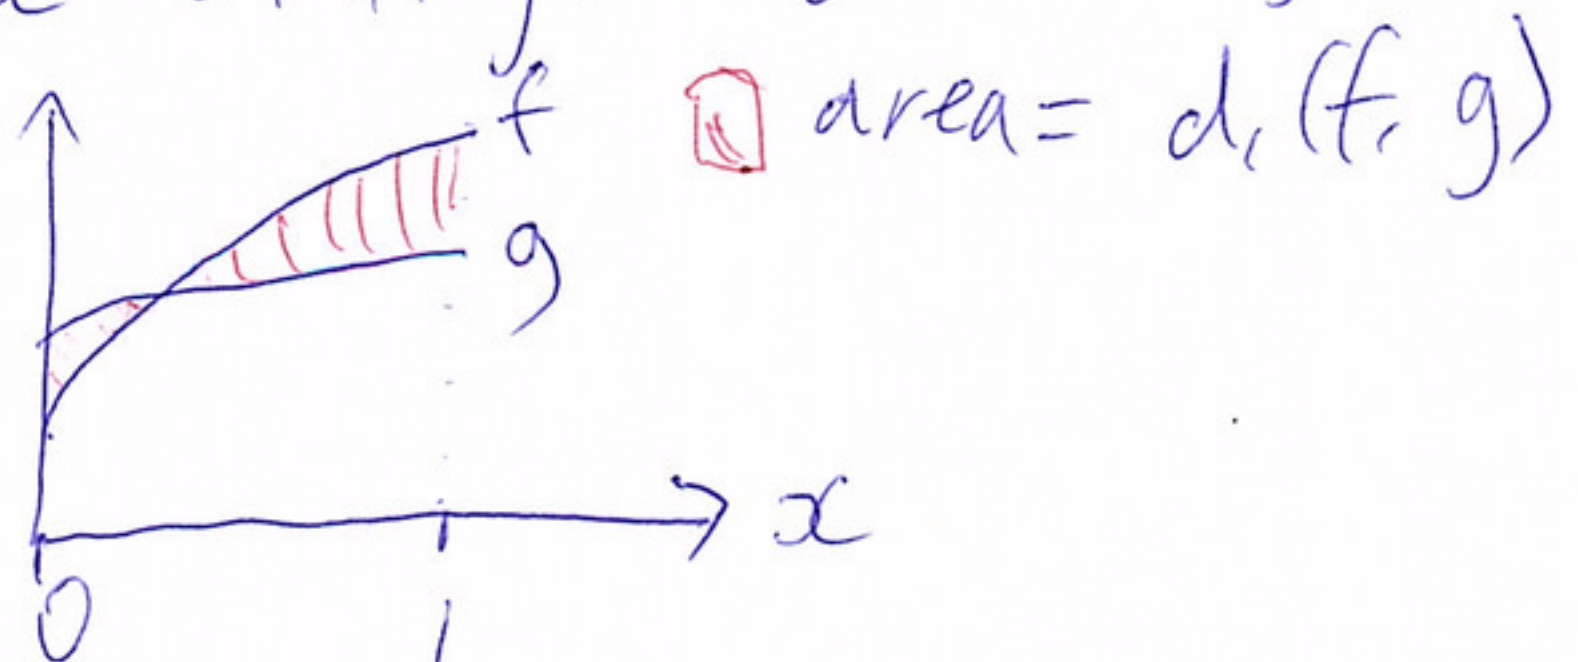 f area = d₁(f, g)
g
x
0 1